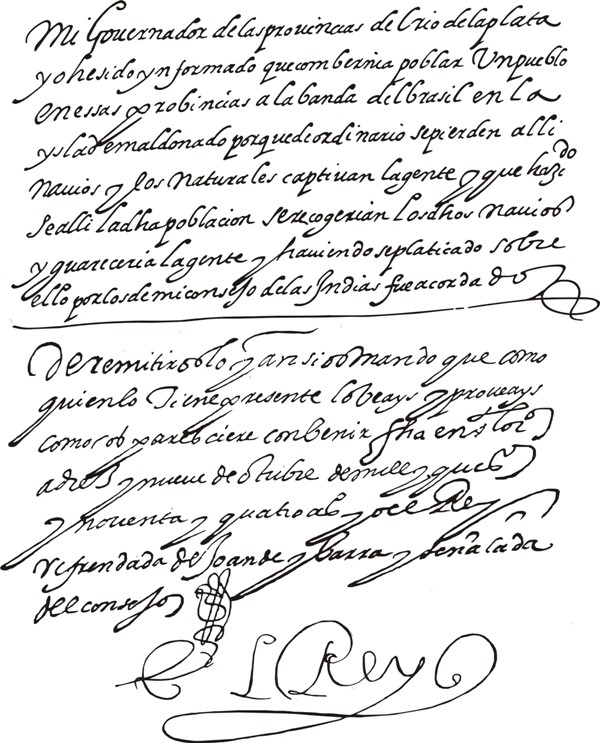 Mi Governador de las provincias del rio de la plata
yo he sido ynformado que combernia poblar Un pueblo
en essas probincias a la banda del brasil en la
ysla de maldonado porque de ordinario se pierden alli
navios y los naturales captivan la gente y que hazdo
se alli la dha poblacion se recogerian los dhos navios
y guareceria la gente y haviendose platicado sobre
ello por los de mi consejo de las Indias fue acordado
De remitiroslo y ansi os mando que como
quien lo Tiene presente lo beays y proveays
como os paresciere conbenir fha en st loro
a diez y nueve de otubre de mill y qus
y noventa y quatro as yo el Rey
refrendada de Joan de ybarra y señalada
del consejo
El Rey